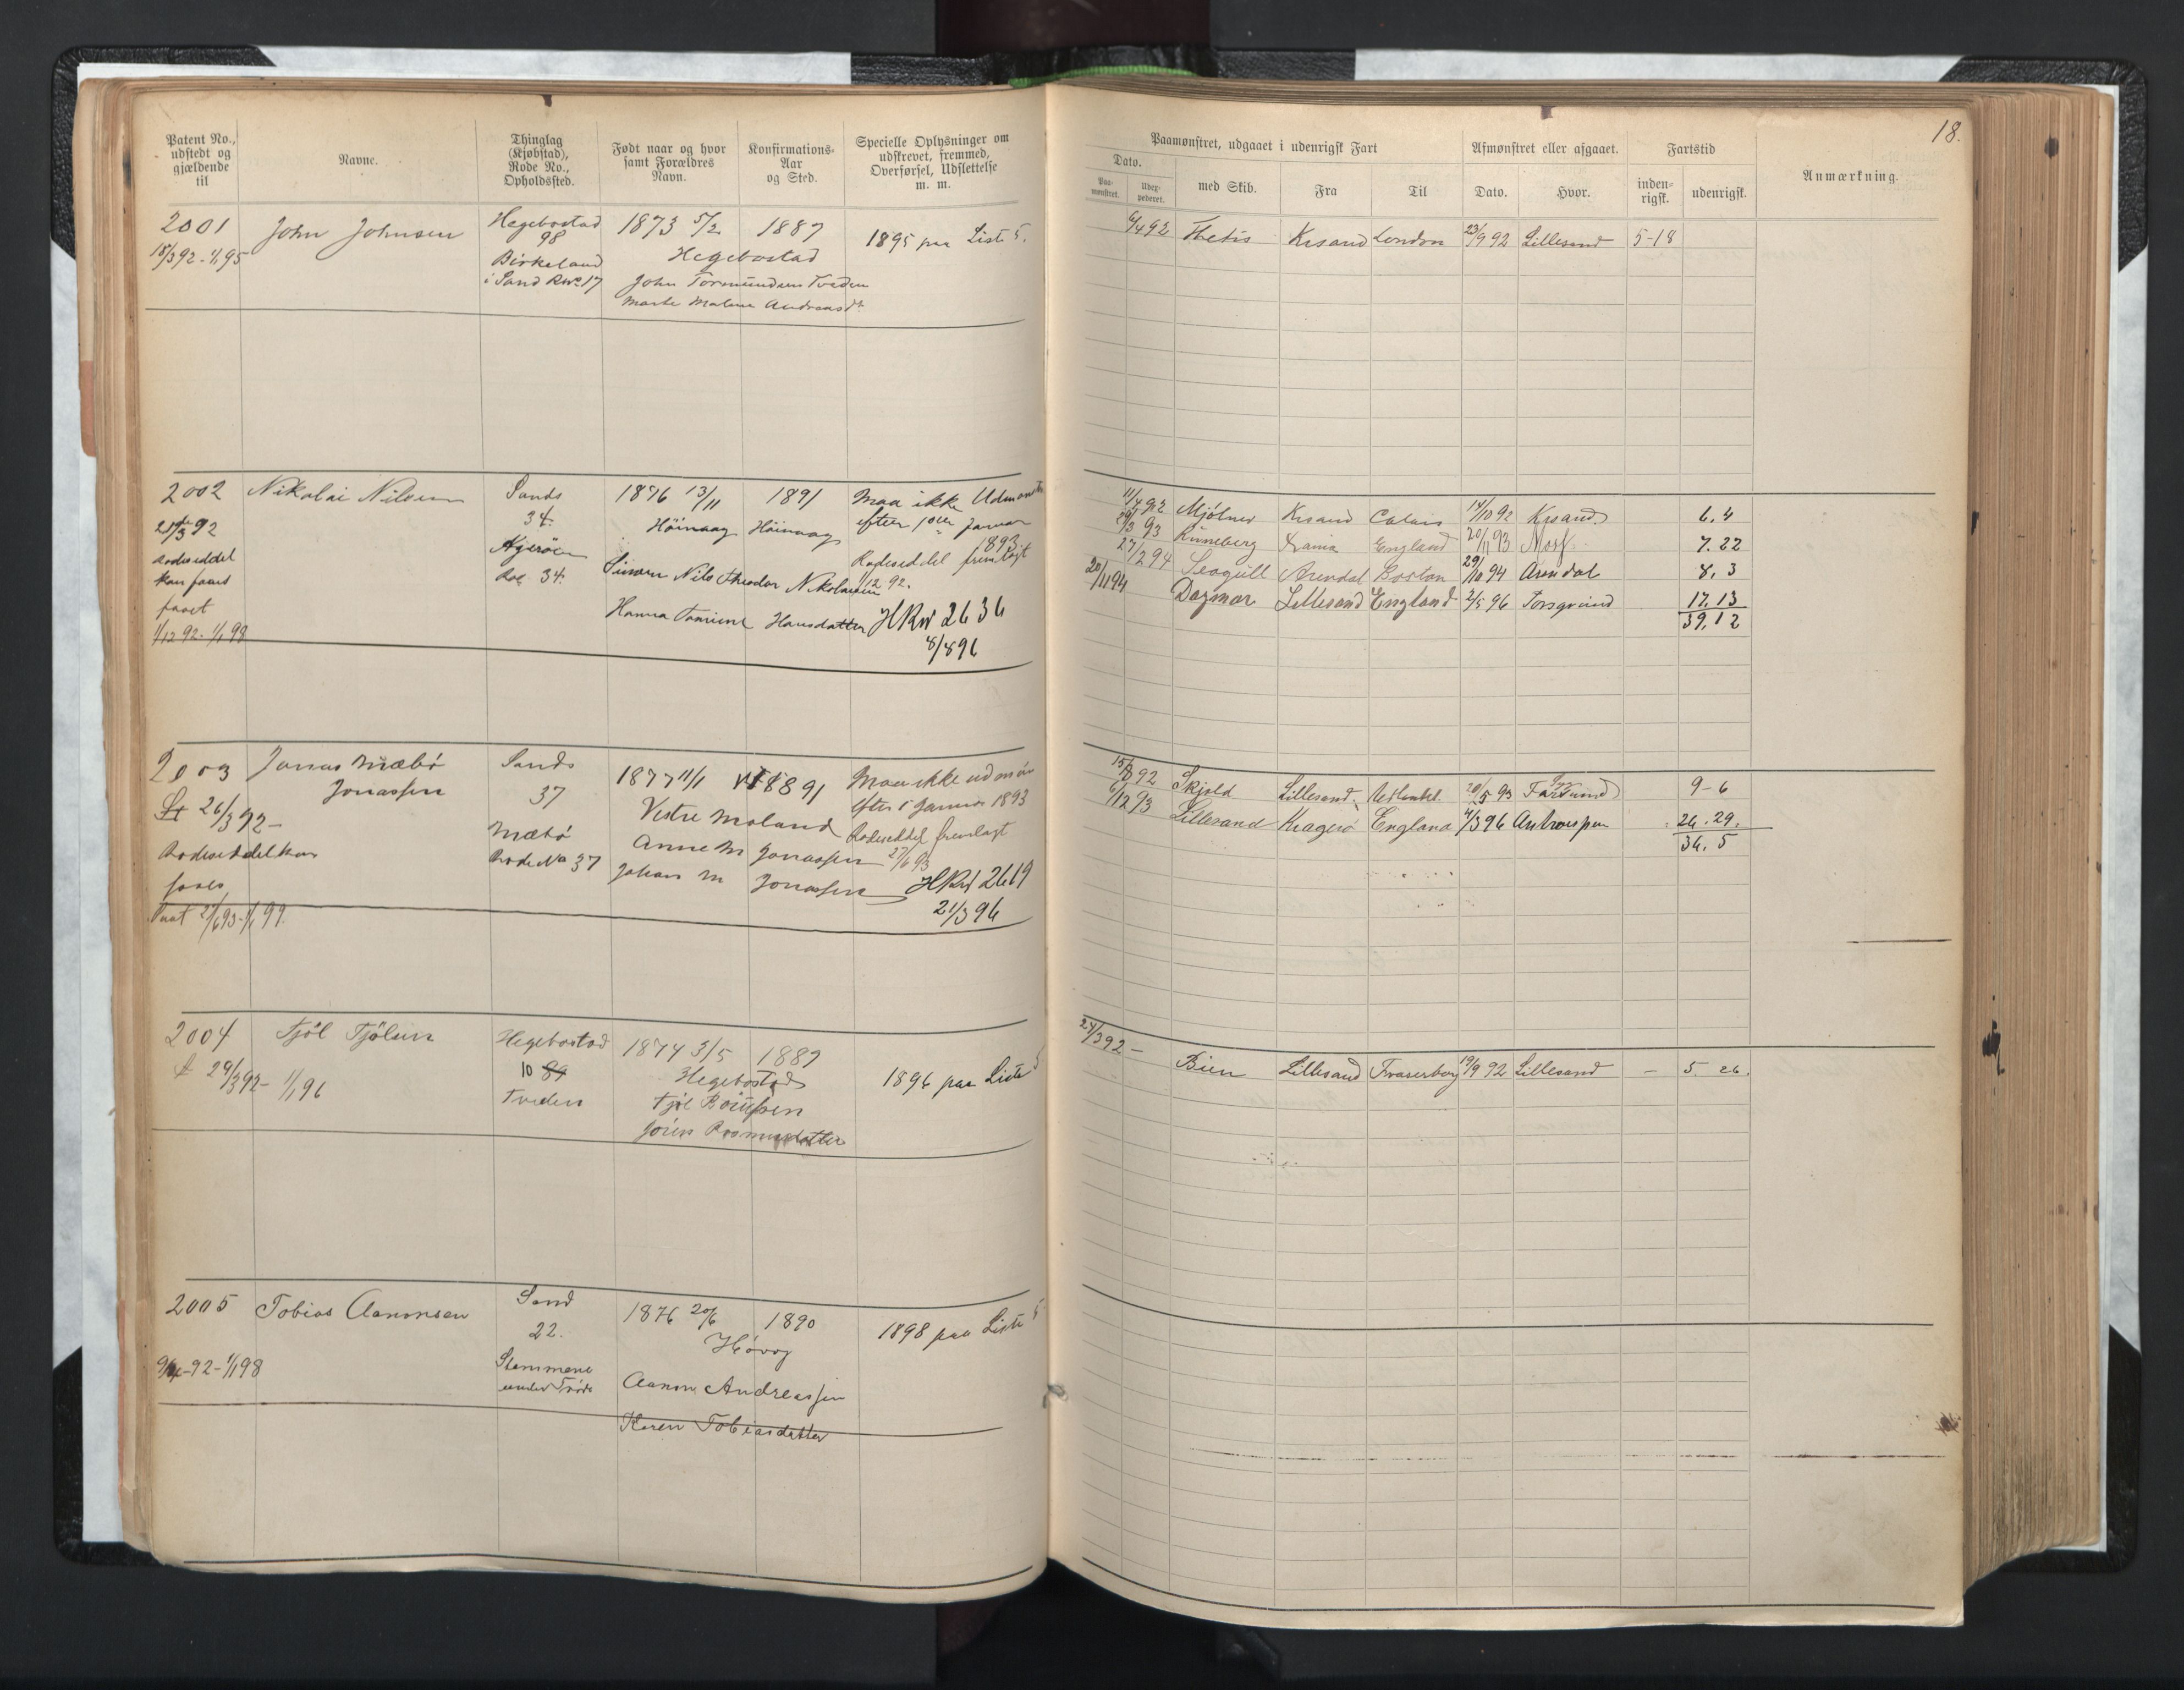 18.
Patent No., udstedt og gjældende til
Navne.
Thinglag (Kjøbstad), Rode No., Opholdssted.
Født naar og hvor samt Forældres Navn.
Konfirmations-Aar og Sted.
Specielle Oplysninger om udskrevet, fremmed, Overførsel, Udslettelse m. m.
Paamønstret, udgaaet i udenrigsk Fart
Afmønstret eller afgaaet.
Fartstid
Anmærkning.
Dato.
Paa-mønstret.
Udex-pederet.
med Skib.
Fra
Til
Dato.
Hvor.
inden-rigsk.
udenrigsk.
2001 John Johnsen Hegebostad 1873 5/2 1887 1895 paa Liste 5.
98
18/3 92 - 1/1 95 Birkeland Hegebostad
i Sand RNo 17 John Tormundsen Tveden
Marte Malene Andreasdt.
6/4 92 Thetis Krsand London 23/9 92 Lillesand 5-18
2002 Nikolai Nilsen Sands 1876 13/11 1891 Maa ikke Udmønst
34.
21/3 92 Høivaag Høivaag efter 1ste Januar 1893
Rodeseddel Agerøen Rodeseddel fremlagt
Rof 34. Nils Theodor Nikolaisen 1/12 92.
faaet Hanna Hansdatter HRNo 2636
1/12 92 - 1/1 98 8/8 96
11/4 92 Mjölner Krsand Calais 14/10 92 Krsand 6. 4
93 Rünneberg England 20/11 93 7. 22
27/2 94 Seagull Arendal Boston 29/10 94 Arendal 8, 3
20/11 94 Dagmar Lillesand England 2/5 96 Porsgrund 17. 13
39, 12
2003 Jonas Mæbø Sands 1877 11/1 1891 Maa ikke udmøn
Jonassen 37 efter 1 Januar 1893
26/3 92 - Vestre Moland Rodeseddel fremlagt
Rodeseddel kan Mæbø Anne M Jonassen 27/6 93
Rode No 37 Johan M Jonassen HRNo 2619
27/6 93 - 1/1 99. 21/3 96
92 Skjold Lillesand 20/5 93 9 - 6
6/12 93 Lillesand Kragerø England 4/3 96 Antwerpen 26. 29.
36. 5
2004 Tjöl Tjölsen Hegebostad 1874 3/5 1889 1896 paa Liste 5
29/3 92 - 1/1 96 10 89 Hegebostad
Tveden Tjöl
Rasmusdatter
24/3 92 - Bien Lillesand Fraserborg 19/9 92 Lillesand - 5. 26.
2005 Tobias Aanonsen Sand 1876 20/6 1890 1898 paa Liste 5
22. Høvag
9/4 - 92 - 1/1 98 Stemmene
under Aanon Andreassen
Karen Tobiasdatter